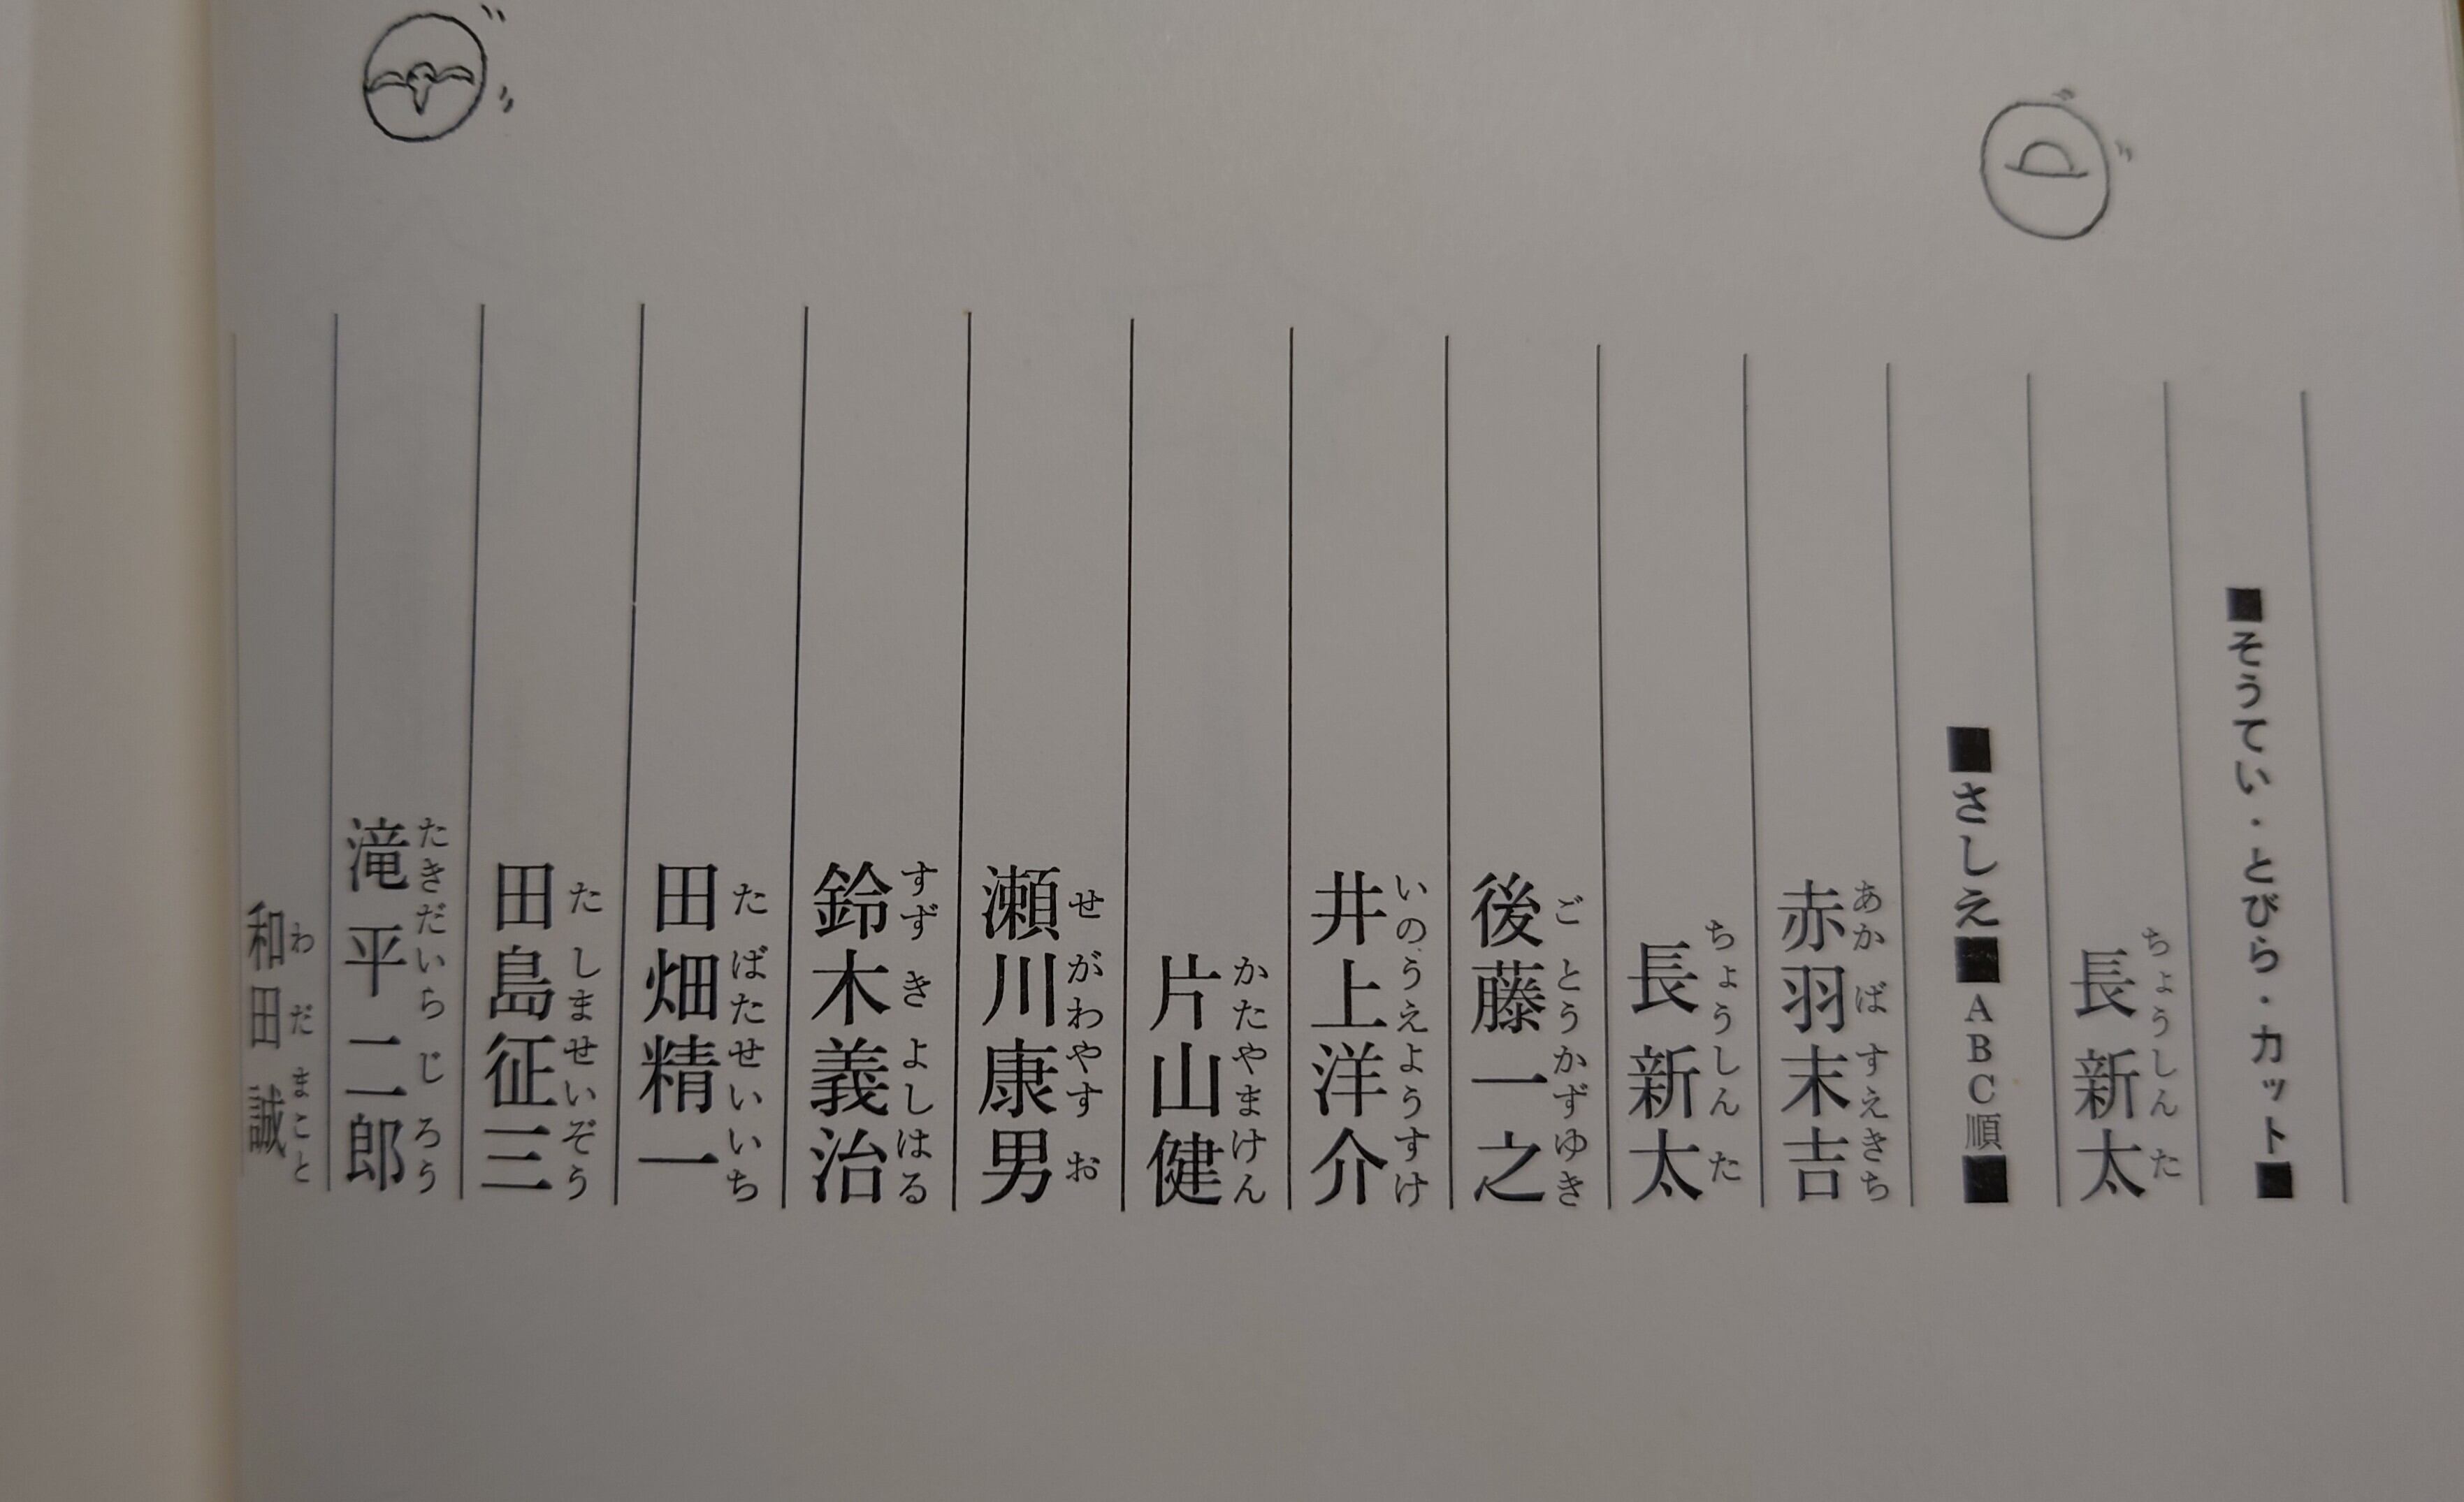 ■そうてい・とびら・カット■
長新太
ちょうしんた
■さしえ■ABC順■
赤羽末吉
あかばすえきち
長新太
ちょうしんた
後藤一之
ごとうかずゆき
井上洋介
いのうえようすけ
片山健
かたやまけん
瀬川康男
せがわやすお
鈴木義治
すずきよしはる
田畑精一
たばたせいいち
田島征三
たしませいぞう
滝平二郎
たきだいらじろう
和田誠
わだまこと